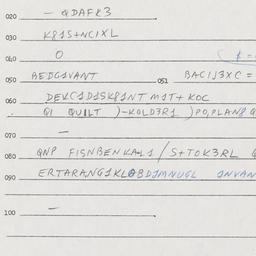 020 — QDAFK3
030 K81S+NCIXL
040 O
050 BEDC1VANT 051 BACIJ3XC =
060 DEVC1D1SK81NT M1T+ KOC
QI QUILT )-KOLD3R1 )PO,PLAN8 Q
070 —
080 QNP FISNBENKAL1 / S+TOK3RL Q
090 ERTARANG1KLOBDJMNUGL 1NVAN
100 —